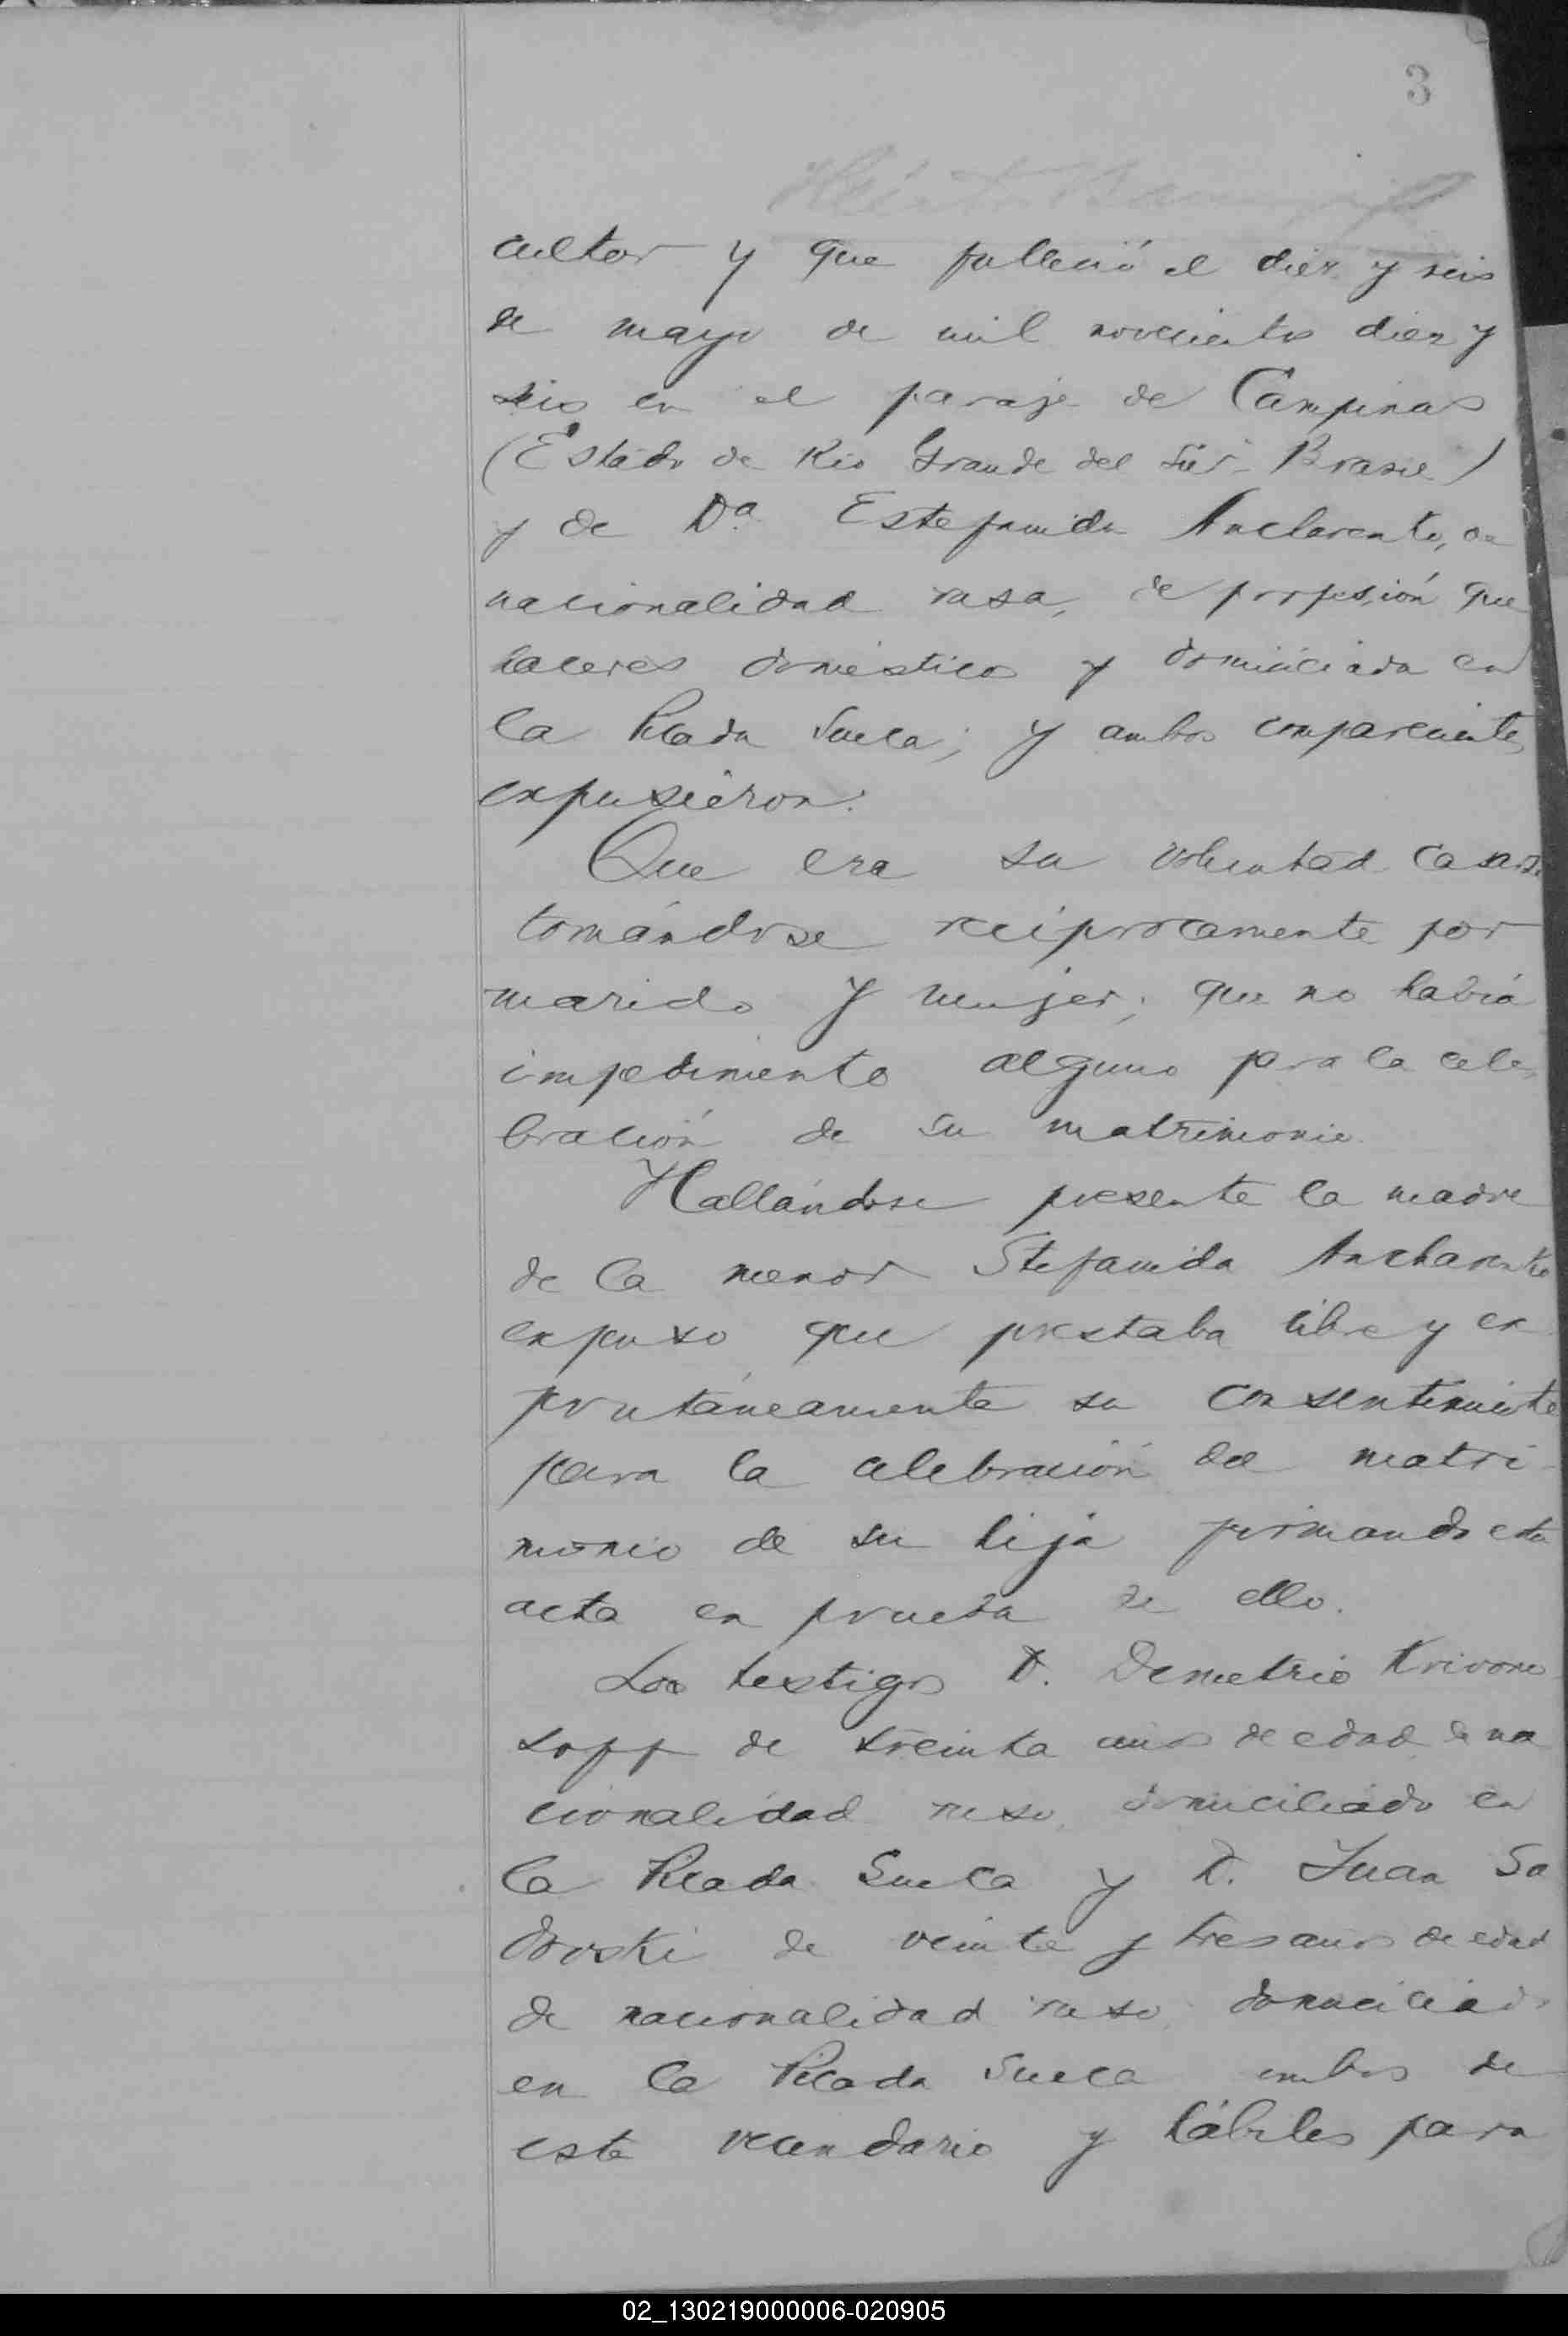 3
cultor y que falleció el diez y seis
de mayo de mil novecientos diez y
seis en el paraje de Campinas
(Estado de Rio Grande del Sur Brasil)
y de Da. Estefamida Ancharenko, de
nacionalidad rusa, de profesión que
haceres domésticos y domiciliada en
la Picada Sueca; y ambos comparecientes
expusieron:
Que era su voluntad casarse
tomándose reciprocamente por
marido y mujer; que no había
impedimento alguno para la cele
bración de su matrimonio
Hallándose presente la madre
de la menor Stefamida Ancharenko
expuso que prestaba libre y es
pontáneamente su consentimiento
para la celebración del matri
monio de su hija firmando esta
acta en prueba de ello.
Los testigos D. Demetrio Krivono
soff de treinta años de edad de na
cionalidad ruso, domiciliado en
la Picada Sueca y D. Juan Sa
dovski de veinte y tres años de edad
de nacionalidad ruso domiciliado
en la Picada Sueca ambos de
este vecindario y hábiles para
02_130219000006-020905